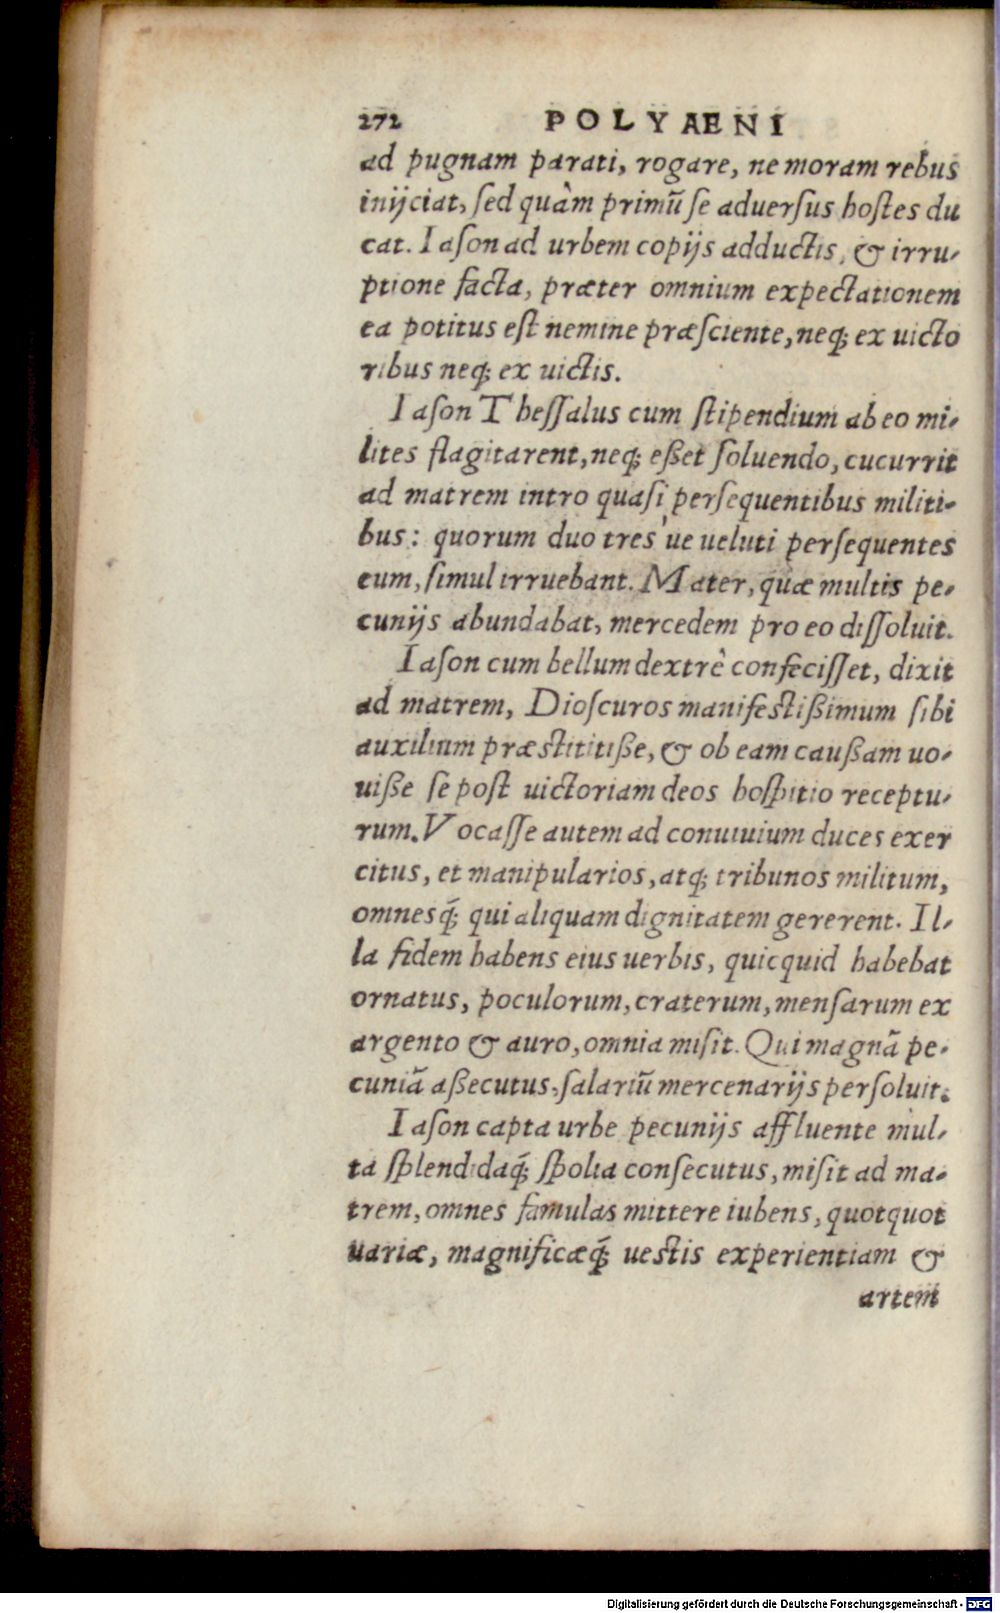 272 POLYAENI
ad pugnam parati, rogare, ne moram rebus
inijciat, ſed quàm primū ſe aduerſus hoſtes du
cat. Iaſon ad urbem copijs adductis, & irru-
ptione facta, præter omnium expectationem
ea potitus eſt nemine præſciente, neq; ex uicto
ribus neq; ex uictis.
Iaſon Theſſalus cum ſtipendium ab eo mi-
lites flagitarent, neq; eßet ſoluendo, cucurrit
ad matrem intro quaſi perſequentibus militi-
bus: quorum duo tres'ue ueluti perſequentes
eum, ſimul irruebant. Mater, quæ multis pe-
cunijs abundabat, mercedem pro eo diſſoluit.
Iaſon cum bellum dextrè confeciſſet, dixit
ad matrem, Dioſcuros manifeſtißimum ſibi
auxilium præſtitiße, & ob eam cauſſam uo-
uiße ſe poſt uictoriam deos hoſpitio receptu-
rum. Vocaſſe autem ad conuiuium duces exer
citus, et manipularios, atq; tribunos militum,
omnesq́; qui aliquam dignitatem gererent. Il-
la fidem habens eius uerbis, quicquid habebat
ornatus, poculorum, craterum, menſarum ex
argento & auro, omnia miſit. Qui magnā pe-
cuniā aßecutus, ſalariū mercenarijs perſoluit.
Iaſon capta urbe pecunijs affluente mul-
ta ſplendidaq́; ſpolia conſecutus, miſit ad ma-
trem, omnes famulas mittere iubens, quotquot
uariæ, magnificæq́; ueſtis experientiam &
artem
Digitalisierung gefördert durch die Deutsche Forschungsgemeinschaft - DFG